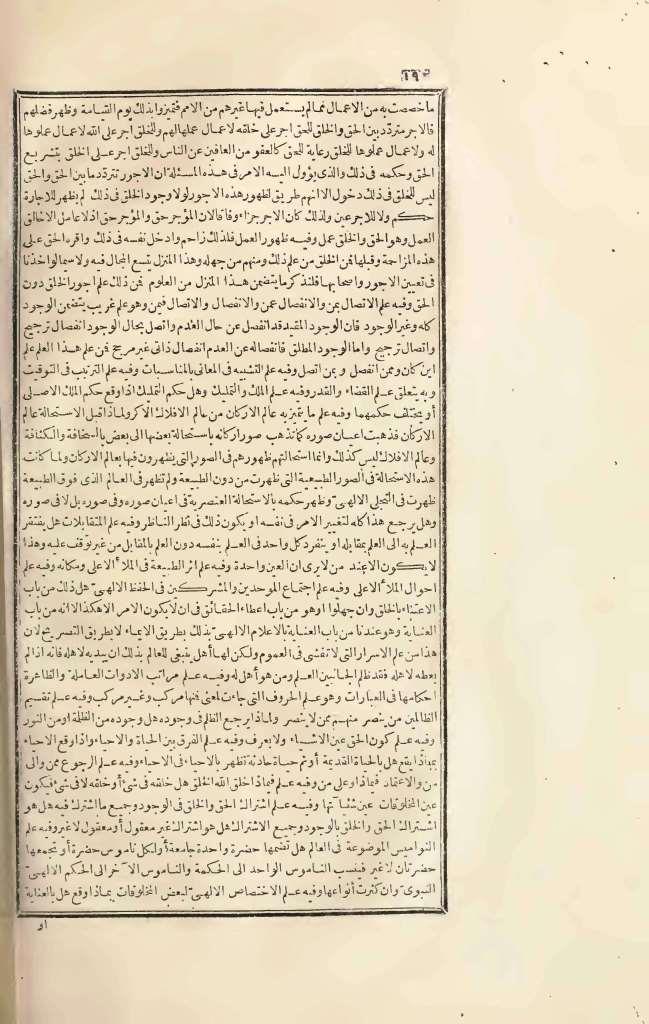 ٦٩٠
ما خصصت به من الاعمال مما لم يستعمل فيها غيرهم من الامم فتميزوا بذلك يوم القيامة وظهر فضلهم
فالاجر متردد بين الحق والخلق للحق اجر على خلقه لاعمال عملها لهم وللخلق اجر على الله لاعمال عملوها
له ولاعمال عملوها للخلق رعاية للحق كالعفو من العافين عن الناس وللخلق اجر على الخلق بتشريع
الحق وحكمه في ذلك والذي يؤول اليه الامر في هذه المسئلة ان الاجور تتردد ما بين الحق والحق
ليس للخلق في ذلك دخول الا انهم طريق لظهور هذه الاجور لولا وجود الخلق في ذلك لم يظهر للاجارة
حكم ولا للاجر عين ولذلك كان الاجر جزاء وفاقا لان المؤجر حق والمؤجر حق اذ لا عامل الا خالق
العمل وهو الحق والخلق عمل وفيه ظهور العمل فلذلك زاحم وادخل نفسه في ذلك واقره الحق على
هذه المزاحمة وقبلها فمن الخلق من علم ذلك ومنهم من جهله وهذا المنزل يتسع المجال فيه ولا سيما لو اخذنا
في تعيين الاجور واصحابها فلنذكر ما يتضمن هذا المنزل من العلوم فمن ذلك علم اجور الخلق دون
الحق وفيه علم الاتصال بمن والانفصال عمن والانفصال والاتصال فيمن وهو علم غريب يتضمن الوجود
كله وغير الوجود فان الوجود المقيد قد انفصل عن حال العدم واتصل بحال الوجود انفصال ترجيح
واتصال ترجيح واما الوجود المطلق فانفصاله عن العدم انفصال ذاتي غير مرجح فمن علم هذا العلم علم
اين كان وممن انفصل وبمن اتصل وفيه علم التشبيه في المعاني بالمناسبات وفيه علم الترتيب في التوقيت
وبه يتعلق علم القضاء والقدر وفيه علم الملك والتمليك وهل حكم التمليك اذا وقع حكم الملك الاصلي
أو يختلف حكمهما وفيه علم ما يتميز به عالم الاركان من عالم الافلاك الاكر ولماذا قبل الاستحالة عالم
الاركان فذهبت اعيان صوره كما تذهب صور اركانه باستحالة بعضها الى بعض بالسخافة والكثافة
وعالم الافلاك ليس كذلك وانما استحالتهم ظهورهم في الصور التي يظهرون فيها بعالم الاركان ولما كانت
هذه الاستحالة في الصور الطبيعية التي ظهرت من دون الطبيعة ولم تظهر في العالم الذي فوق الطبيعة
ظهرت في التجلي الالهي وظهر حكمه بالاستحالة العنصرية في اعيان صوره وفي صوره بل لا في صوره
وهل يرجع هذا كله لتغيير الامر في نفسه او يكون ذلك في نظر الناظر وفيه علم المتقابلات هل يفتقر
العلم به الى العلم بمقابله او ينفرد كل واحد في العلم بنفسه دون العلم بالمقابل من غير توقف عليه وهذا
لا يكون الا عند من لا يرى ان العين واحدة وفيه علم اثر الطبيعة في الملأ الاعلى ومكانه وفيه علم
احوال الملأ الاعلى وفيه علم اجتماع الموحدين والمشركين في الحفظ الالهي هل ذلك من باب
الاعتناء بالخلق وان جهلوا او هو من باب اعطاء الحقائق في ان لا يكون الامر الا هكذا الا انه من باب
العناية وهو عندنا من باب العناية بالاعلام الالهي بذلك بطريق الايماء لا بطريق التصريح لان
هذا من علم الاسرار التي لا تفشى في العموم ولكن لها أهل ينبغي للعالم بذلك ان يبديه لاهله فانه اذا لم
يعطه لاهله فقد ظلم الجانبين العلم ومن هو أهل له وفيه علم مراتب الادوات العاملة والظاهرة
احكامها في العبارات وهو علم الحروف التي جاءت لمعنى فنها مركب وغير مركب وفيه علم تقسيم
الظالمين من ينصر منهم ممن لا ينصر ولماذا يرجع الظلم في وجوده هل وجوده من الظلمة او من النور
وفيه علم كون الحق عين الاشياء ولا يعرف وفيه علم الفرق بين الحياة والاحياء واذا وقع الاحياء
بماذا يقع هل بالحياة القديمة أو ثم حياة حادثة تظهر بالاحياء في الاحياء وفيه علم الرجوع ممن والى
من والاعتماد فيماذا وعلى من وفيه علم فيماذا خلق الله الخلق هل خلقه في شيء أو خلقه لا في شيء فيكون
عين المخلوقات عين شيئياتها وفيه علم اشتراك الحق والخلق في الوجود وجميع ما اشترك فيه هل هو
اشتراك الحق والخلق بالوجود وجميع الاشتراك هل هو اشتراك غير معقول أو معقول لا غير وفيه علم
النواميس الموضوعة في العالم هل تضمها حضرة واحدة جامعة أو لكل ناموس حضرة أو تجمعها
حضرتان لا غير فينسب الناموس الواحد الى الحكمة والناموس الآخر الى الحكم الالهي
النبوي وان كثرت أنواعها وفيه علم الاختصاص الالهي لبعض المخلوقات بماذا وقع هل بالعناية
او